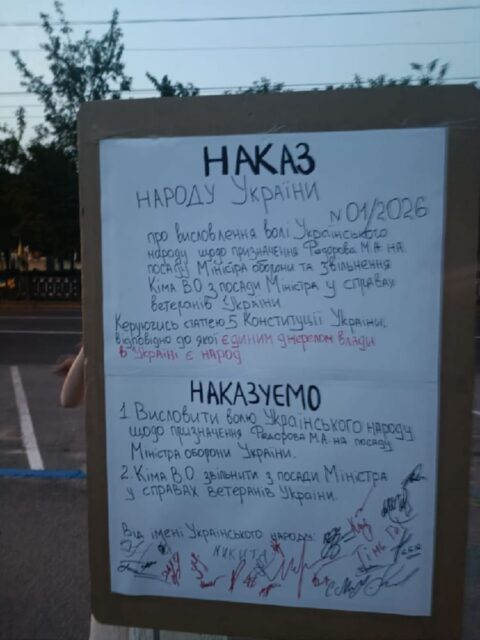 НАКАЗ
НАРОДУ УКРАЇНИ
N 01/2026
про висловлення волі Українського
народу щодо призначення Федорова М.А. на
посаду Міністра оборони та звільнення
Кіма В.О з посади Міністра у справах
ветеранів України
Керуючись статтею 5 Конституції України,
відповідно до якої єдиним джерелом влади
в Україні є народ
НАКАЗУЄМО
1. Висловити волю Українського народу
щодо призначення Федорова М.А. на посаду
Міністра оборони України.
2. Кіма В.О. звільнити з посади Міністра
у справах ветеранів України.
Від імені Українського народу:
НИКИТА